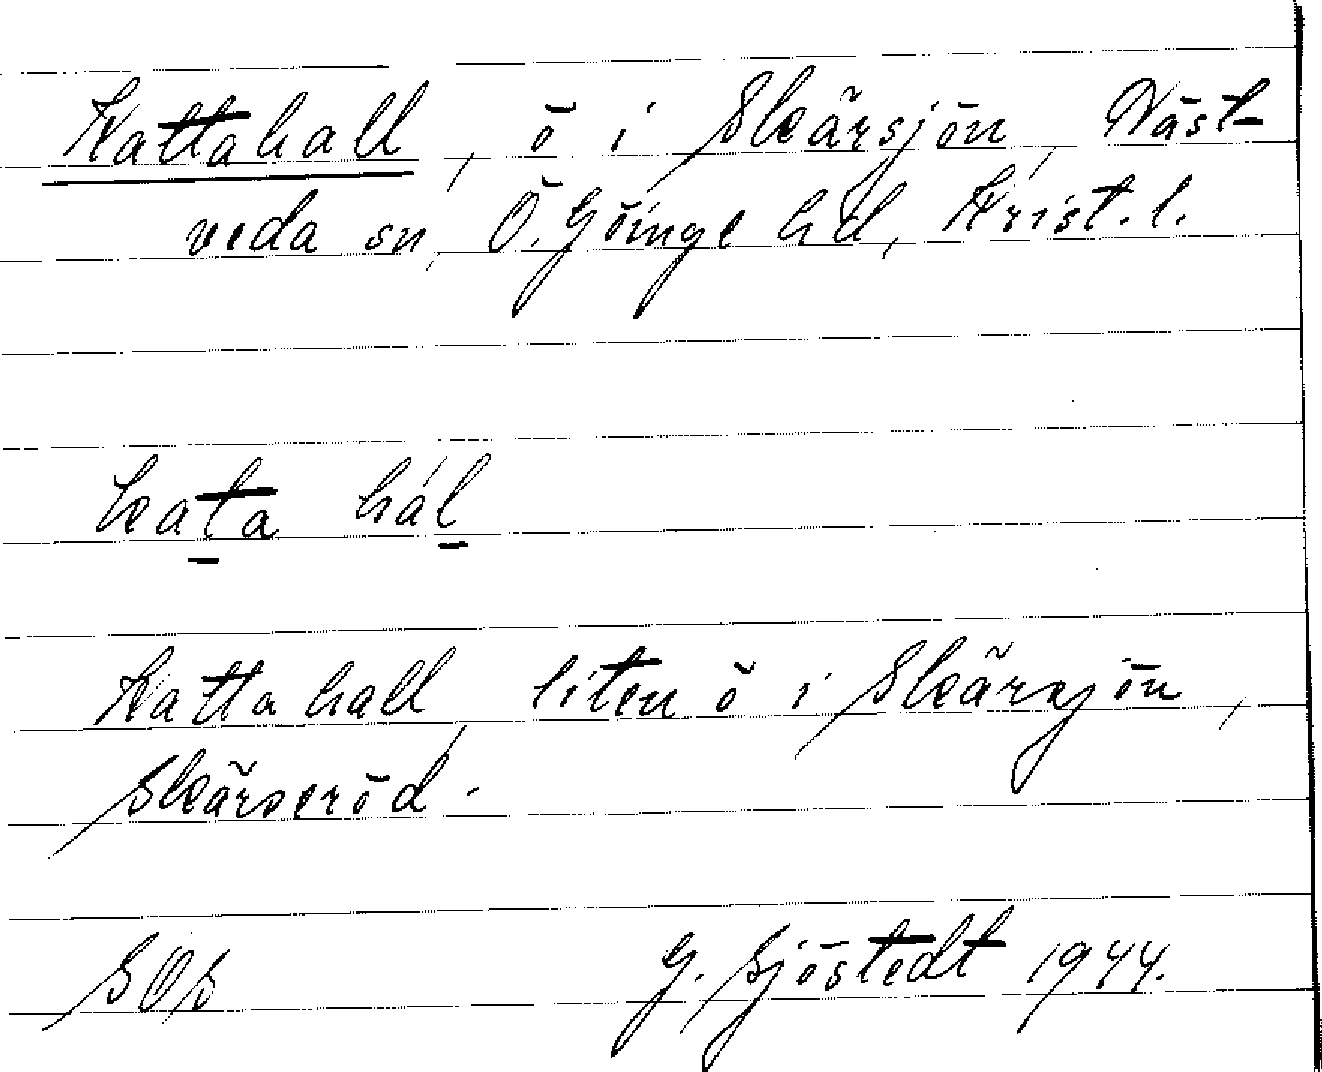 Kattahall, ö i Skärsjön, Väst-
veda sn, Ö. Göinge hd, Krist. l.
kata hál
Kattahall, liten ö i Skärsjön,
Skärseröd.
SOS G. Sjöstedt 1944.